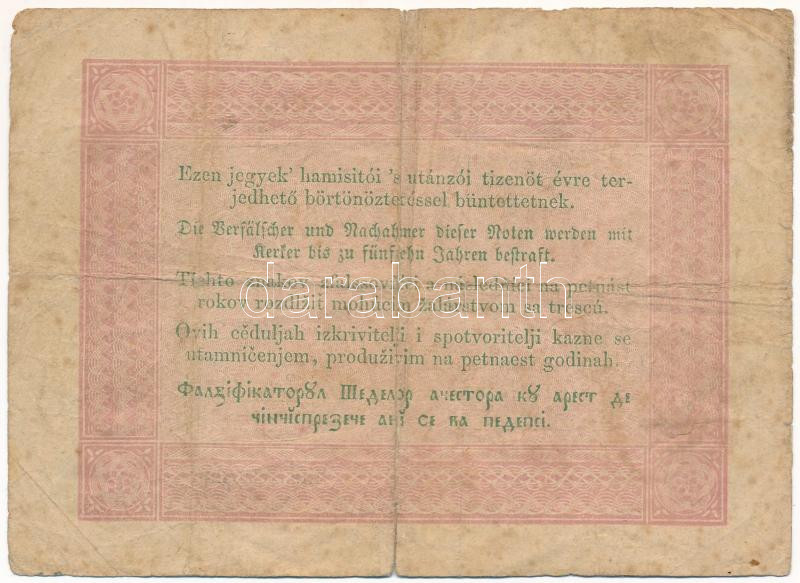 Ezen jegyek' hamisitói 's utánzói tizenöt évre ter-
jedhető börtönöztetéssel büntettetnek.
Die Verfälscher und Nachahmer dieser Noten werden mit
Kerker bis zu fünfzehn Jahren bestraft.
Tichto na petnást
rokov žalárstvom sa trescú.
Ovih cěduljah izkrivitelji i spotvoritelji kazne se
utamničenjem, produživim na petnaest godinah.
Фалзіфікаторꙋл Шеделор ачестора кꙋ арест де
чінчіспрезече ані се ва педепсі.
darabanth